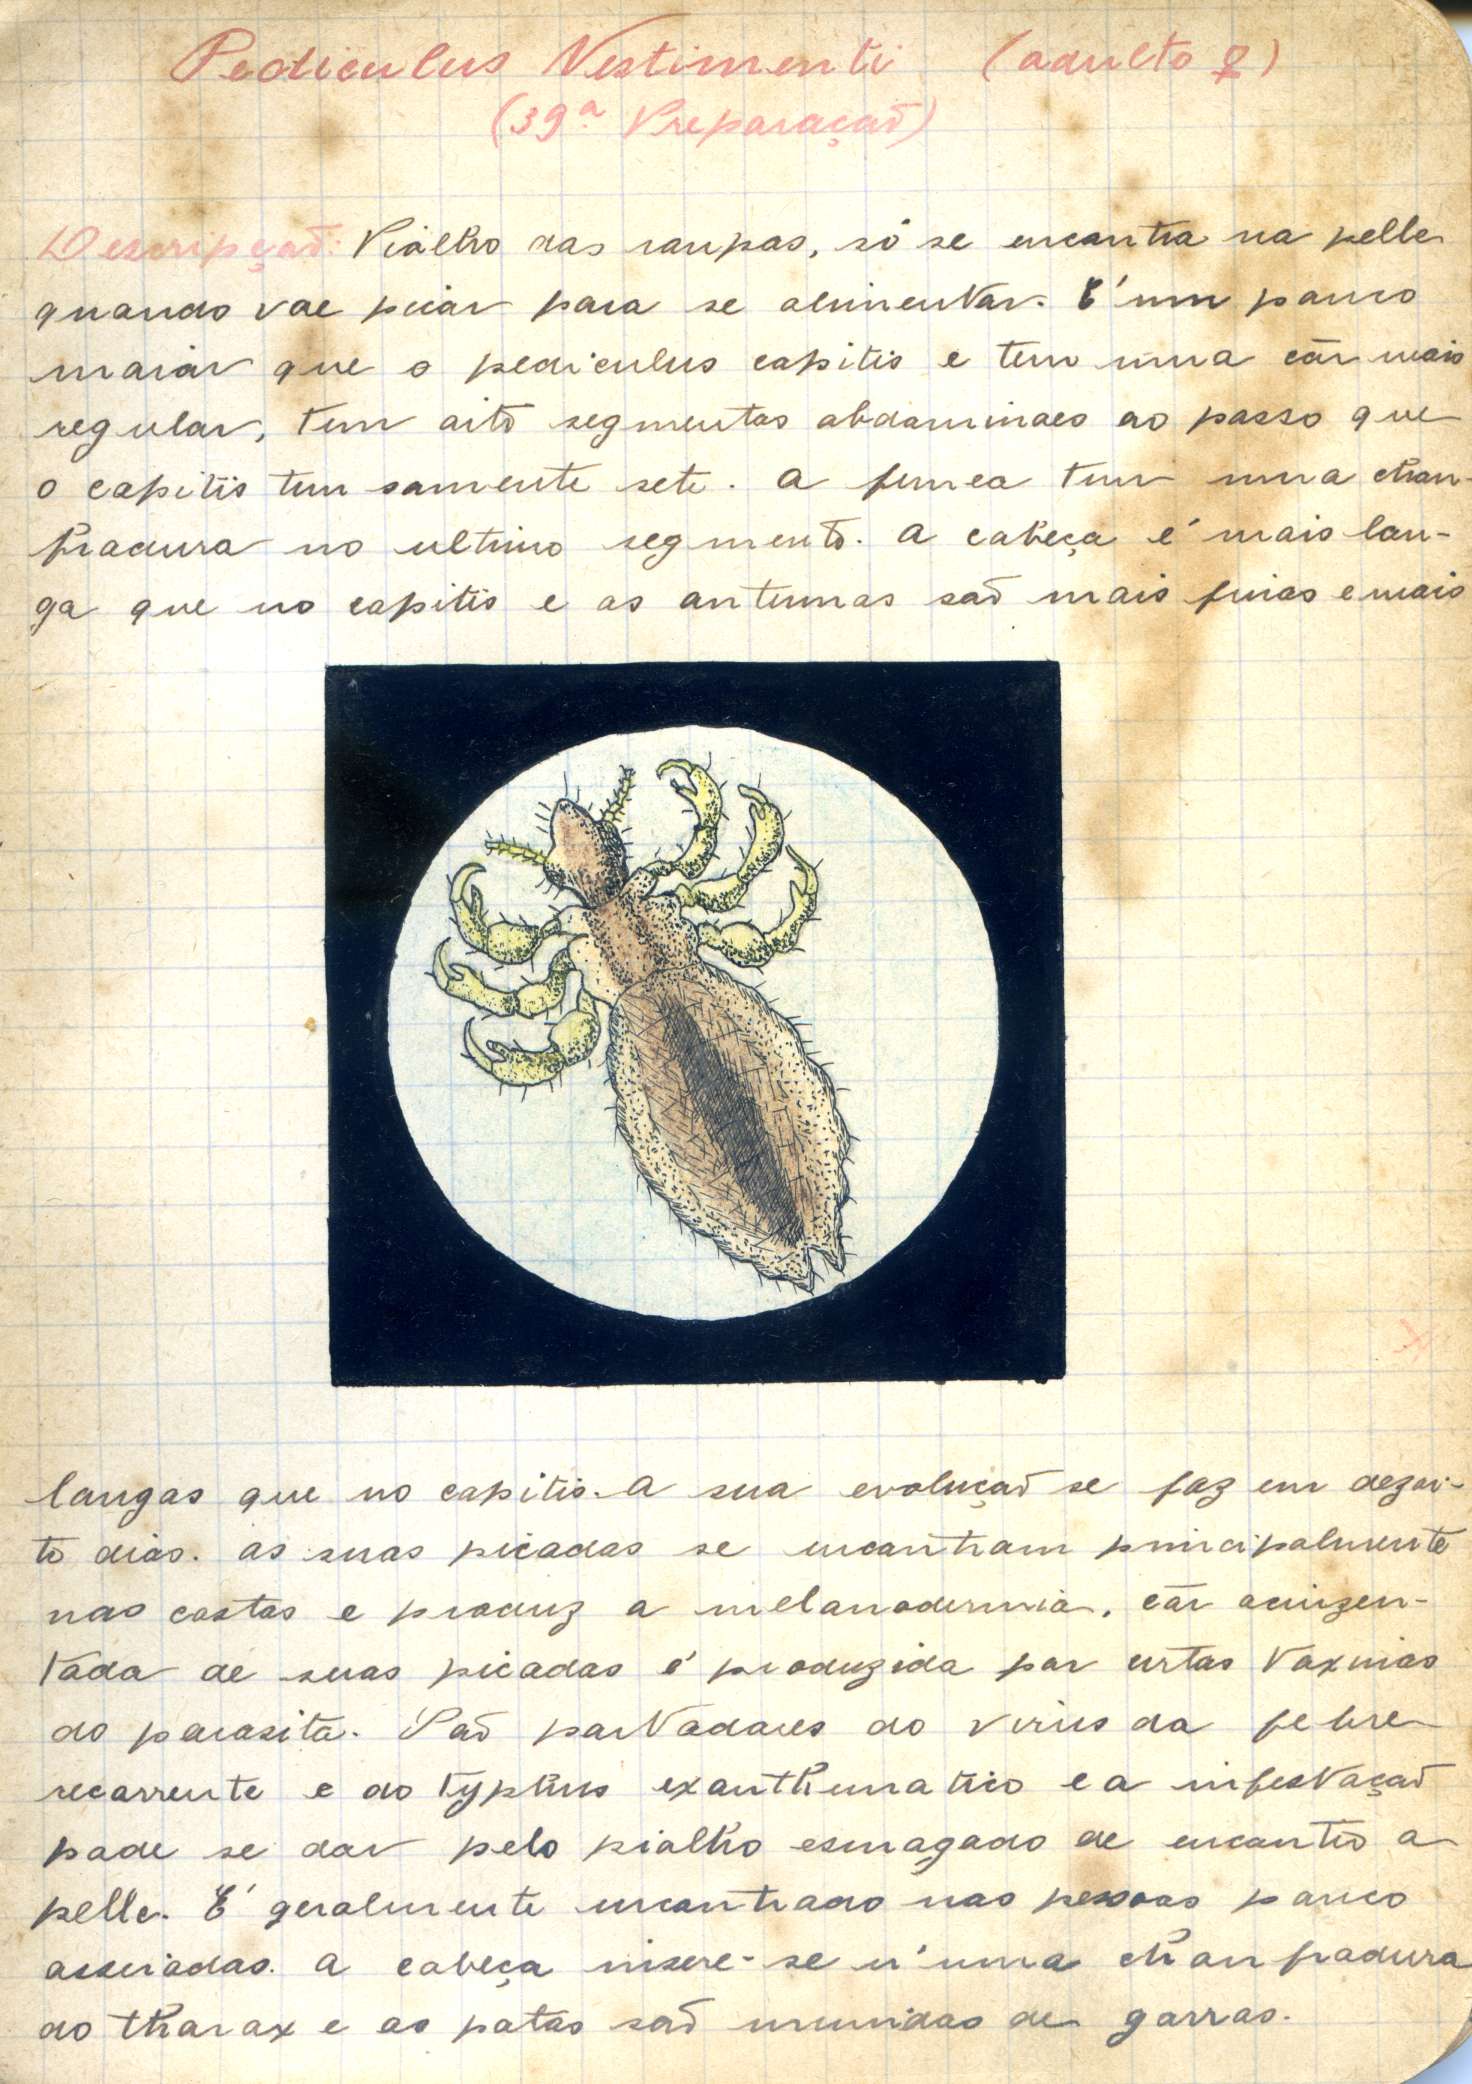 Pediculus Vestimenti (adulto ♀)
(39ª Preparação)
Descripção: Piolho das roupas, só se encontra na pelle
quando vae picar para se alimentar. E' um pouco
maior que o pediculus capitis e tem uma côr mais
regular, tem oito segmentos abdominaes ao passo que
o capitis tem somente sete. A femea tem uma chan-
fradura no ultimo segmento. A cabeça é mais lon-
ga que no capitis e as antennas são mais finas e mais
longas que no capitis. A sua evolução se faz em dezoi-
to dias. As suas picadas se encontram principalmente
nas costas e produz a melanodermia. côr acinzen-
tada de suas picadas é produzida por certas toxinas
do parasita. São portadores do virus da febre
recorrente e do typhus exanthematico e a infestação
pode se dar pelo piolho esmagado de encontro a
pelle. E' geralmente encontrado nas pessoas pouco
asseiadas. A cabeça insere-se n'uma chanfradura
do thorax e as patas são munidas de garras.